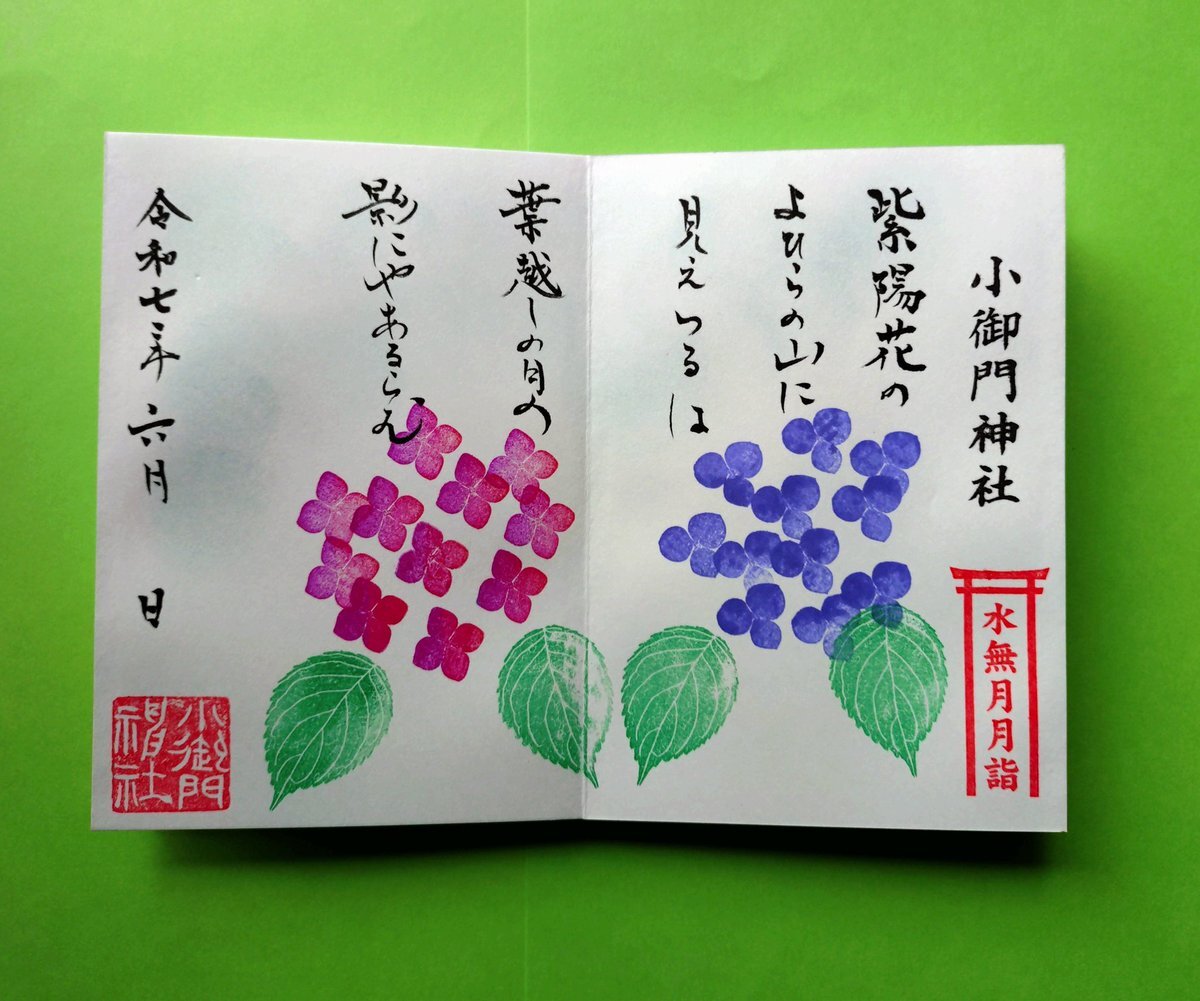 小御門神社
水無月月詣
紫陽花の
よひらの山に
見えつるは
葉越しの月の
影にやあるらむ
令和七年 六月 日
小御門
神社